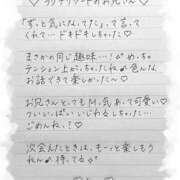 「ずっと気になってた」って言って
くれて…ドキドキしちゃった♡
まさかの同じ趣味…!!めっちゃ
テンション上がっちゃったね色んな
お話できて楽しかった〜♡
お兄さん、とってもM気あって可愛い♡
ついいっぱいいじわるしちゃった…
ごめんね?♡
次会えたときは、もーっと楽しもう
ね♡待ってる♡